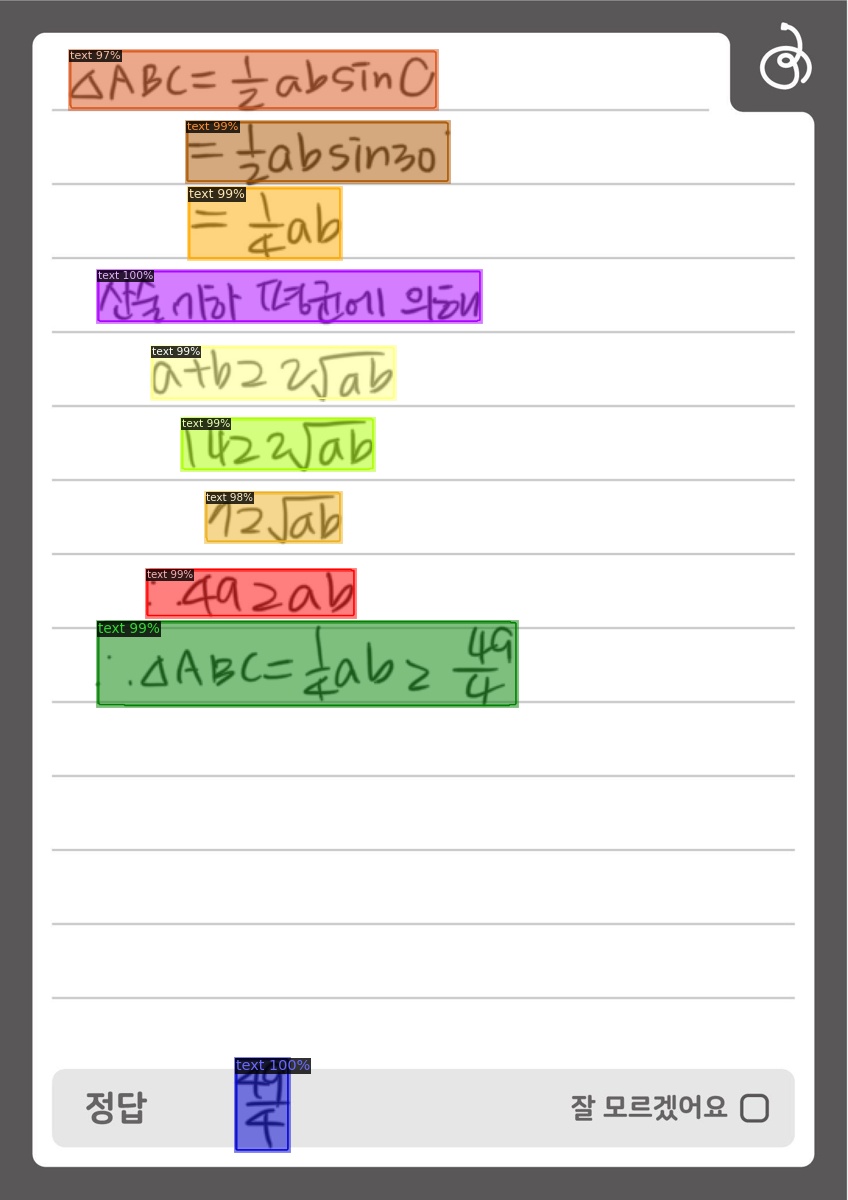 text 97%
△ABC = 1/2 ab sin C
text 99%
= 1/2 ab sin 30°
text 99%
= 1/4 ab
text 100%
산술기하 평균에 의해
text 99%
a+b ≥ 2√ab
text 99%
14 ≥ 2√ab
text 98%
7 ≥ √ab
text 99%
∴ 49 ≥ ab
text 99%
∴ △ABC = 1/4 ab ≥ 49/4
text 100%
정답 49/4 잘 모르겠어요